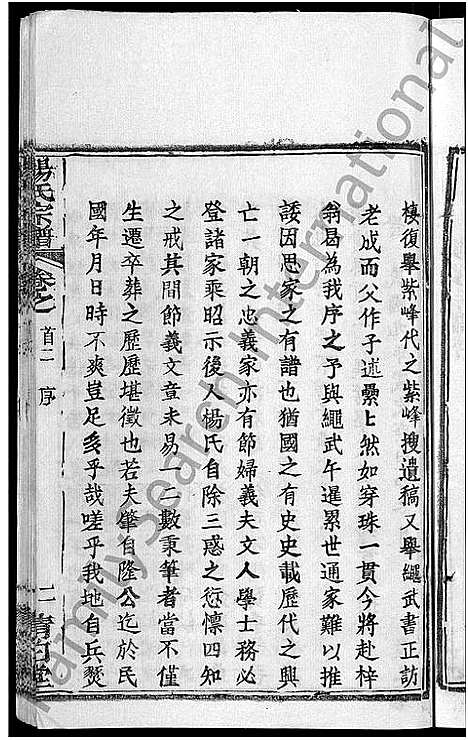 棲復舉紫峰代之紫峰搜遺稿又舉繩武書正訪
老成而父作子述纍上然如穿珠一貫今將赴梓
翁曷為我序之予與繩武午暹累世通家難以推
諉因思家之有譜也猶國之有史史載歷代之興
亡一朝之忠義家亦有節婦義夫文人學士務必
登諸家乘昭示後人楊氏自除三惑之愆懔四知
之戒其間節義文章未易一二數秉筆者當不僅
生遷卒葬之歷歷堪徵也若夫肇自隆公迄於民
國年月日時不爽豈足多乎哉嗟乎我地自兵燹
楊氏宗譜
卷之
首二
序
一
清白堂
Family Search International